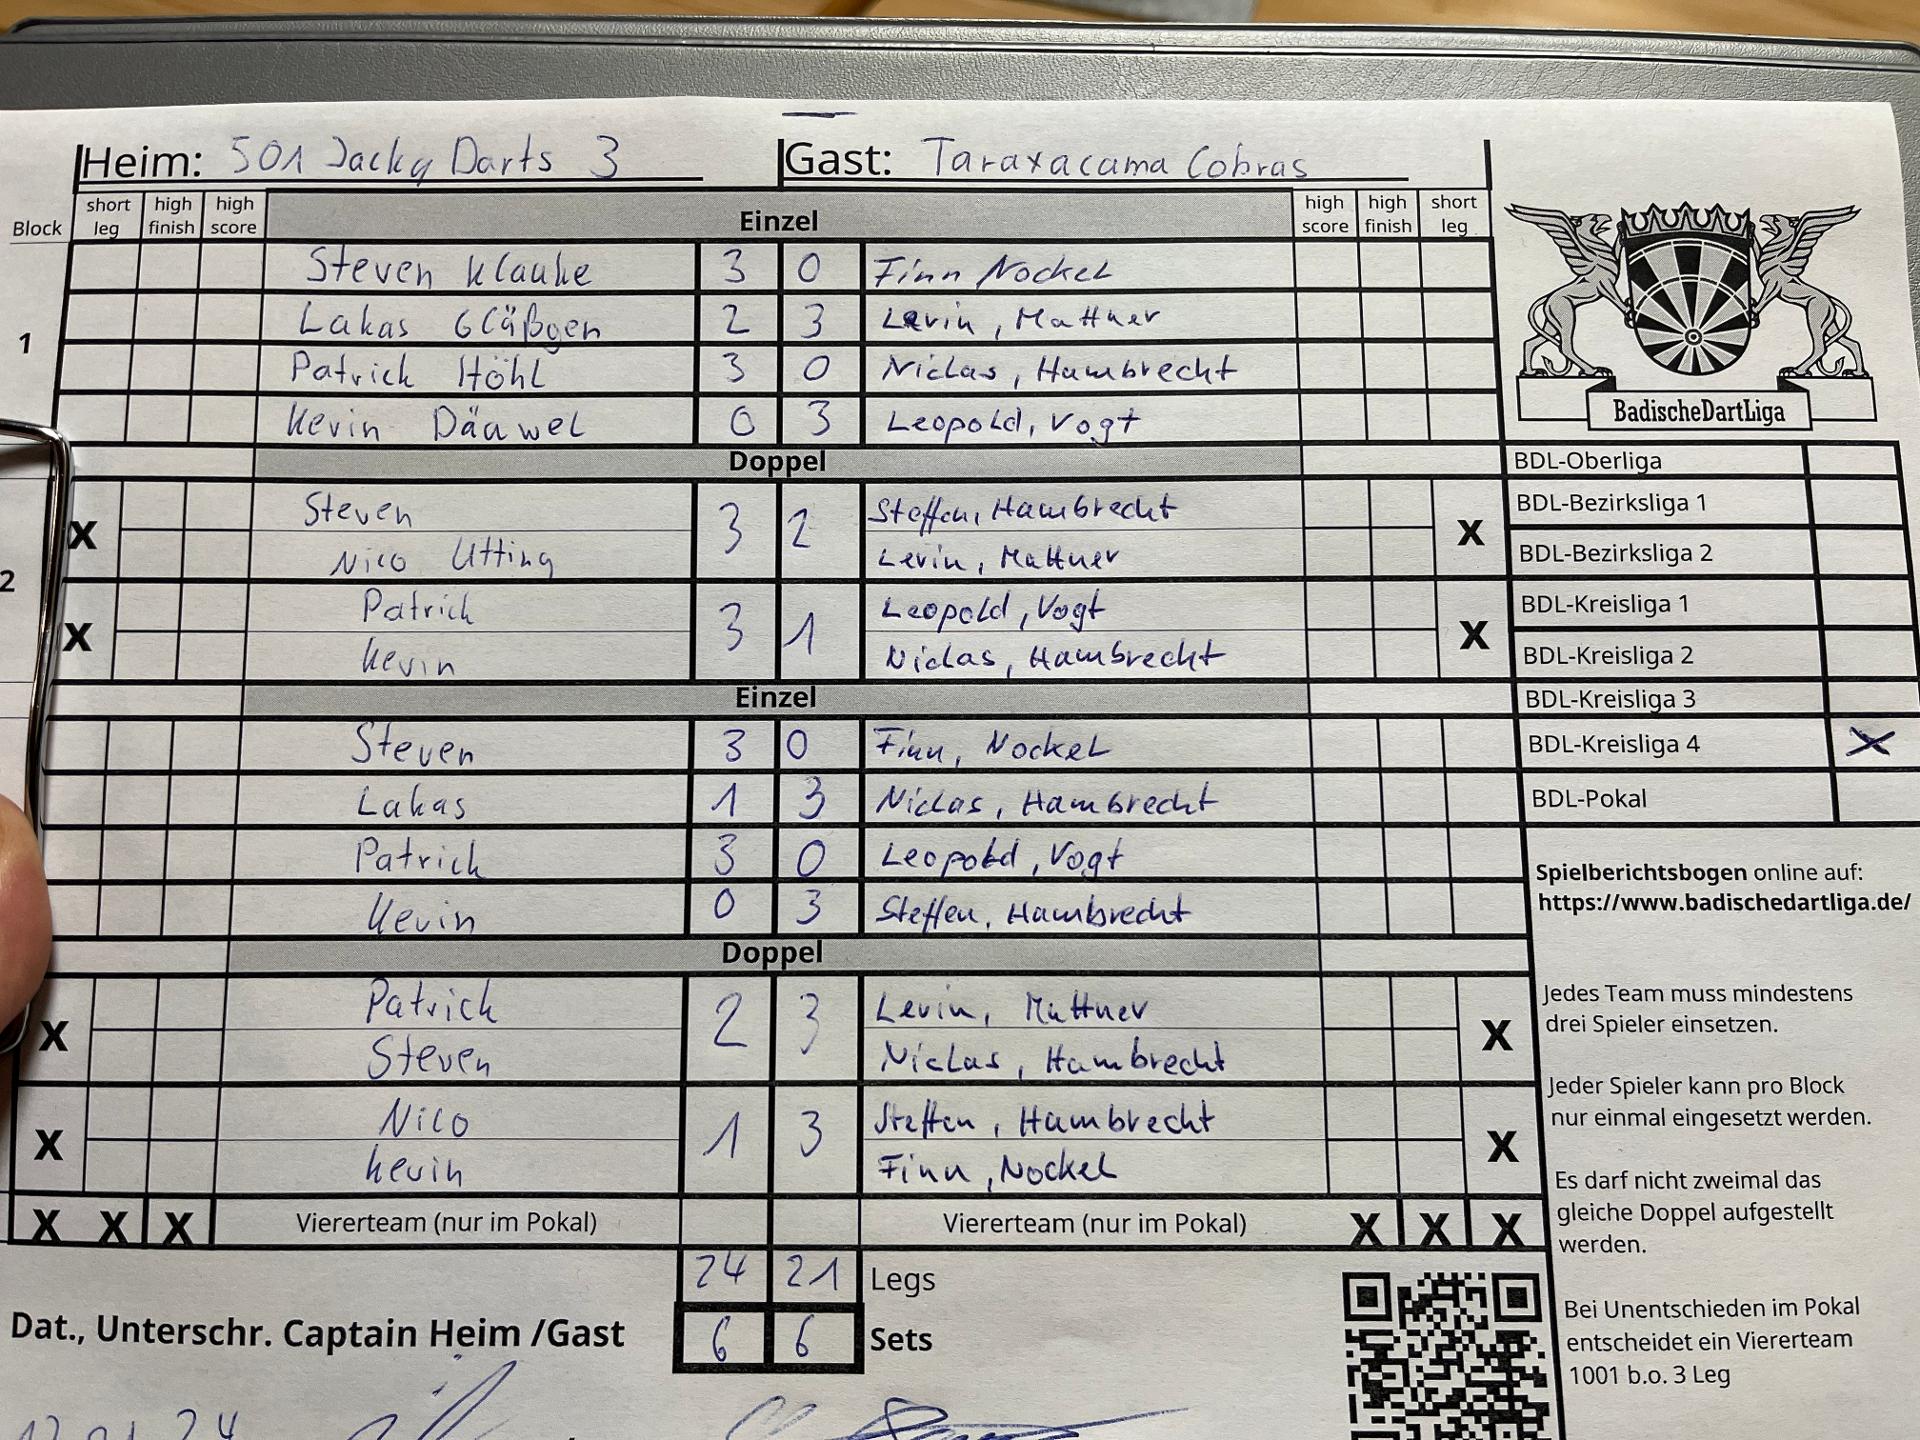 Heim: 501 Jacky Darts 3 Gast: Taraxacama Cobras
Block short leg high finish high score Einzel high score high finish short leg
Steven Klauke 3 0 Finn Nockel
1 Lukas Gläßgen 2 3 Levin, Mattner
Patrick Höhl 3 0 Niclas, Hambrecht
Kevin Däuwel 0 3 Leopold, Vogt
BadischeDartLiga
Doppel
Steven 3 2 Steffen, Hambrecht
X Nico Utting Levin, Mattner X
2
Patrick 3 1 Leopold, Vogt
X Kevin Niclas, Hambrecht X
Einzel
Steven 3 0 Finn, Nockel
Lukas 1 3 Niclas, Hambrecht
Patrick 3 0 Leopold, Vogt
Kevin 0 3 Steffen, Hambrecht
Doppel
Patrick 2 3 Levin, Mattner
X Steven Niclas, Hambrecht X
Nico 1 3 Steffen, Hambrecht
X Kevin Finn, Nockel X
X X X Viererteam (nur im Pokal) Viererteam (nur im Pokal) X X X
24 21 Legs
6 6 Sets
Dat., Unterschr. Captain Heim /Gast
BDL-Oberliga
BDL-Bezirksliga 1
BDL-Bezirksliga 2
BDL-Kreisliga 1
BDL-Kreisliga 2
BDL-Kreisliga 3
BDL-Kreisliga 4 X
BDL-Pokal
Spielberichtsbogen online auf:
https://www.badischedartliga.de/
Jedes Team muss mindestens
drei Spieler einsetzen.
Jeder Spieler kann pro Block
nur einmal eingesetzt werden.
Es darf nicht zweimal das
gleiche Doppel aufgestellt
werden.
Bei Unentschieden im Pokal
entscheidet ein Viererteam
1001 b.o. 3 Leg